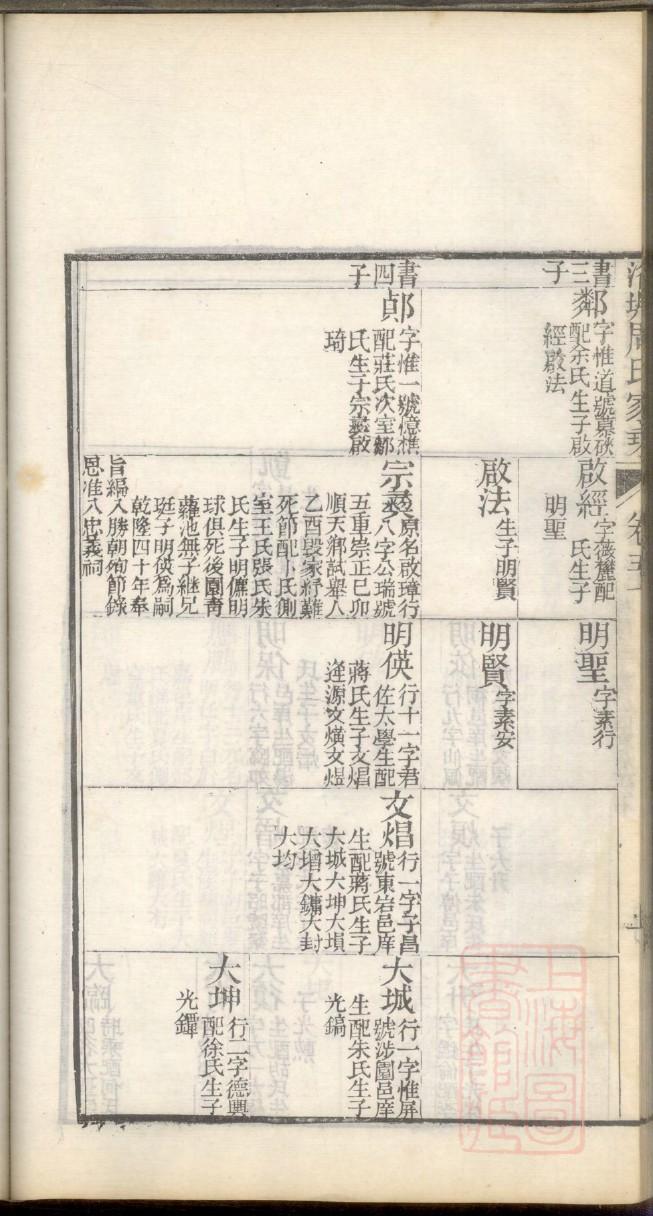 周氏家
卷五
書三子
鄰 字惟道號慕
配余氏生子啟
經啟法
書四子
鄖 字惟一號憶樵
配莊氏次室鄒
氏生子宗彝啟
琦
啟經 字薇 配
氏生子
明聖
啟法 生子明賢
宗彝 原名啟璋行
五重八字公瑞號
崇正己卯
順天鄉試舉人
乙酉毀家紓難
死節配卜氏側
室王氏張氏朱
氏生子明儷明
球俱死後圍青
蘿池無子繼兄
珽子明偀為嗣
乾隆四十年奉
旨編入勝朝殉節錄
恩准入忠義祠
明聖 字素行
明賢 字素安
明偀 行十一字君
佐太學生配
蔣氏生子文焻
逢源文熿文煜
文焻 行一字子昌
號東岩邑庠
生配蔣氏生子
大城大坤大塤
大增大鏞大封
大均
大城 行一字惟屏
號涉園邑庠
生配朱氏生子
光鎬
大坤 行二字德輿
配徐氏生子
光鐸
上海圖書館藏